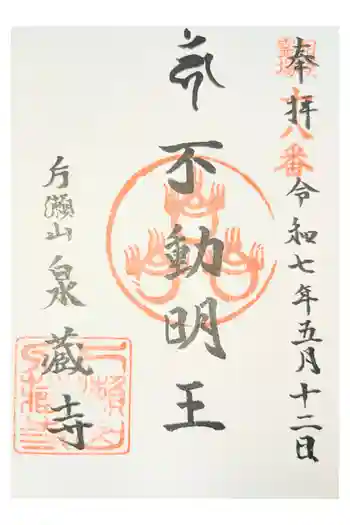 奉拝
八番
令和七年五月十二日
不動明王
片瀬山
泉蔵寺